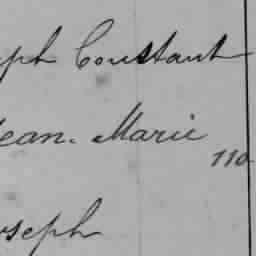 ph Constant
Jean. Marie
110
oseph